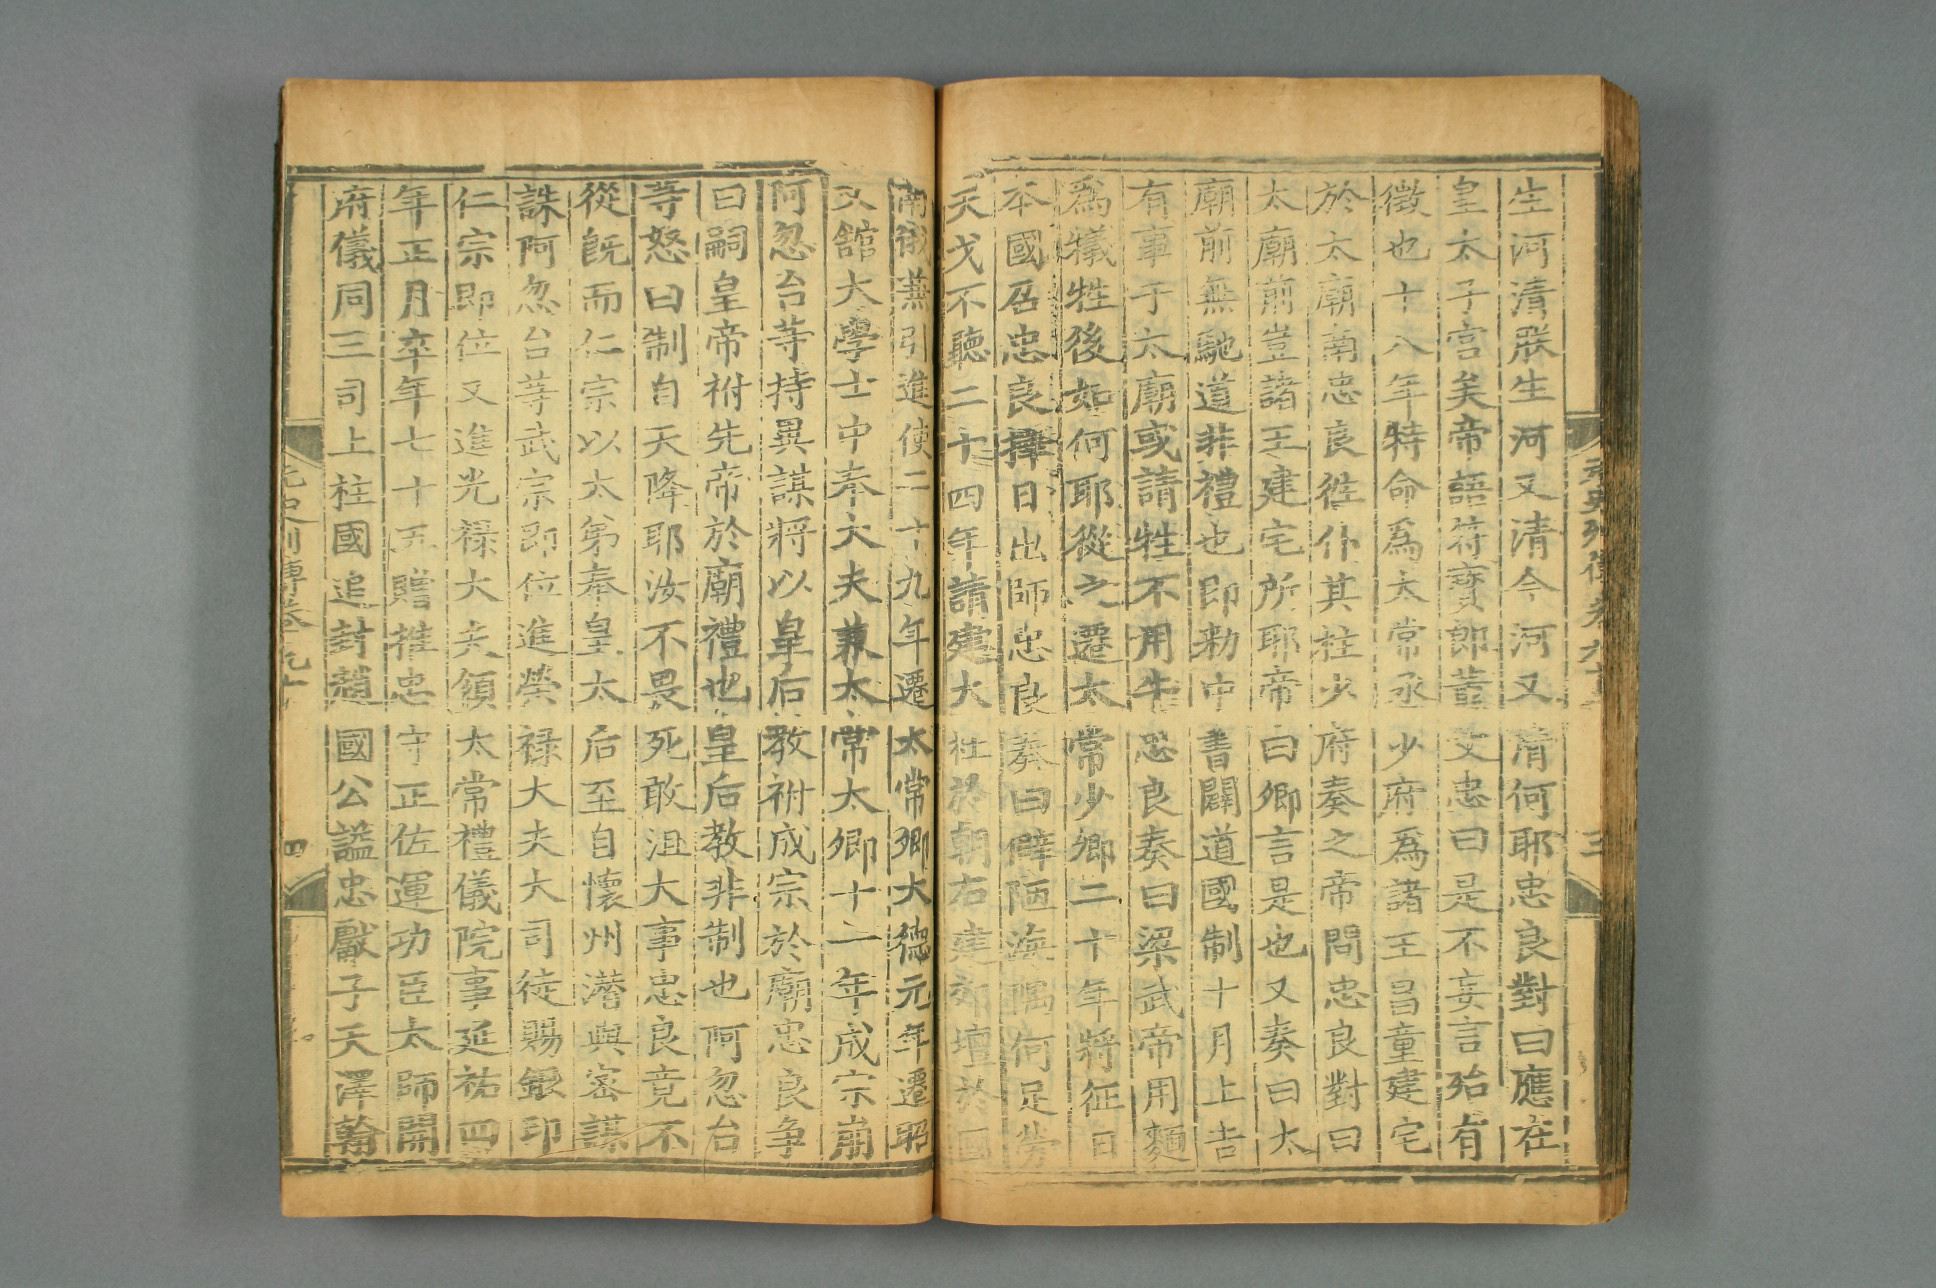 生河清朕生河又清今河又清何耶忠良對曰應在
皇太子宮矣帝語符寶郎董文忠曰是不妄言殆有
徵也十八年特命為太常丞少府為諸王昌童建宅
於太廟南忠良徃仆其柱少府奏之帝問忠良對曰
太廟前豈諸王建宅所耶帝曰卿言是也又奏曰太
廟前無馳道非禮也即勑中書闢道國制十月上吉
有事于太廟或請牲不用牛忠良奏曰梁武帝用麵
為犧牲後如何耶從之遷太常少卿二十年將征日
本國召忠良擇日出師忠良奏曰僻陋海隅何足勞
天戈不聽二十四年請建大社於朝右建郊壇於國
南俄兼引進使二十九年遷太常卿大德元年遷昭
文館大學士中奉大夫兼太常太卿十一年成宗崩
阿忽台等持異謀將以皇后教祔成宗於廟忠良争
曰嗣皇帝祔先帝於廟禮也皇后教非制也阿忽台
等怒曰制自天降耶汝不畏死敢沮大事忠良竟不
從既而仁宗以太弟奉皇太后至自懷州潛與密謀
誅阿忽台等武宗即位進榮祿大夫大司徒賜銀印
仁宗即位又進光祿大夫領太常禮儀院事延祐四
年正月卒年七十五贈推忠守正佐運功臣太師開
府儀同三司上柱國追封趙國公諡忠獻子天澤翰
元史列傳卷九十
三
元史列傳卷九十
四